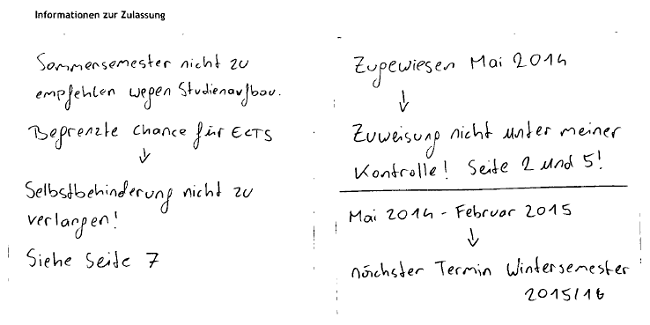 Informationen zur Zulassung
Sommersemester nicht zu
empfehlen wegen Studienaufbau.
Begrenzte Chance für ECTS
↓
Selbstbehinderung nicht zu
verlangen!
Siehe Seite 7
Zugewiesen Mai 2014
↓
Zuweisung nicht unter meiner
Kontrolle! Seite 2 und 5!
Mai 2014 - Februar 2015
↓
nächster Termin Wintersemester
2015/16